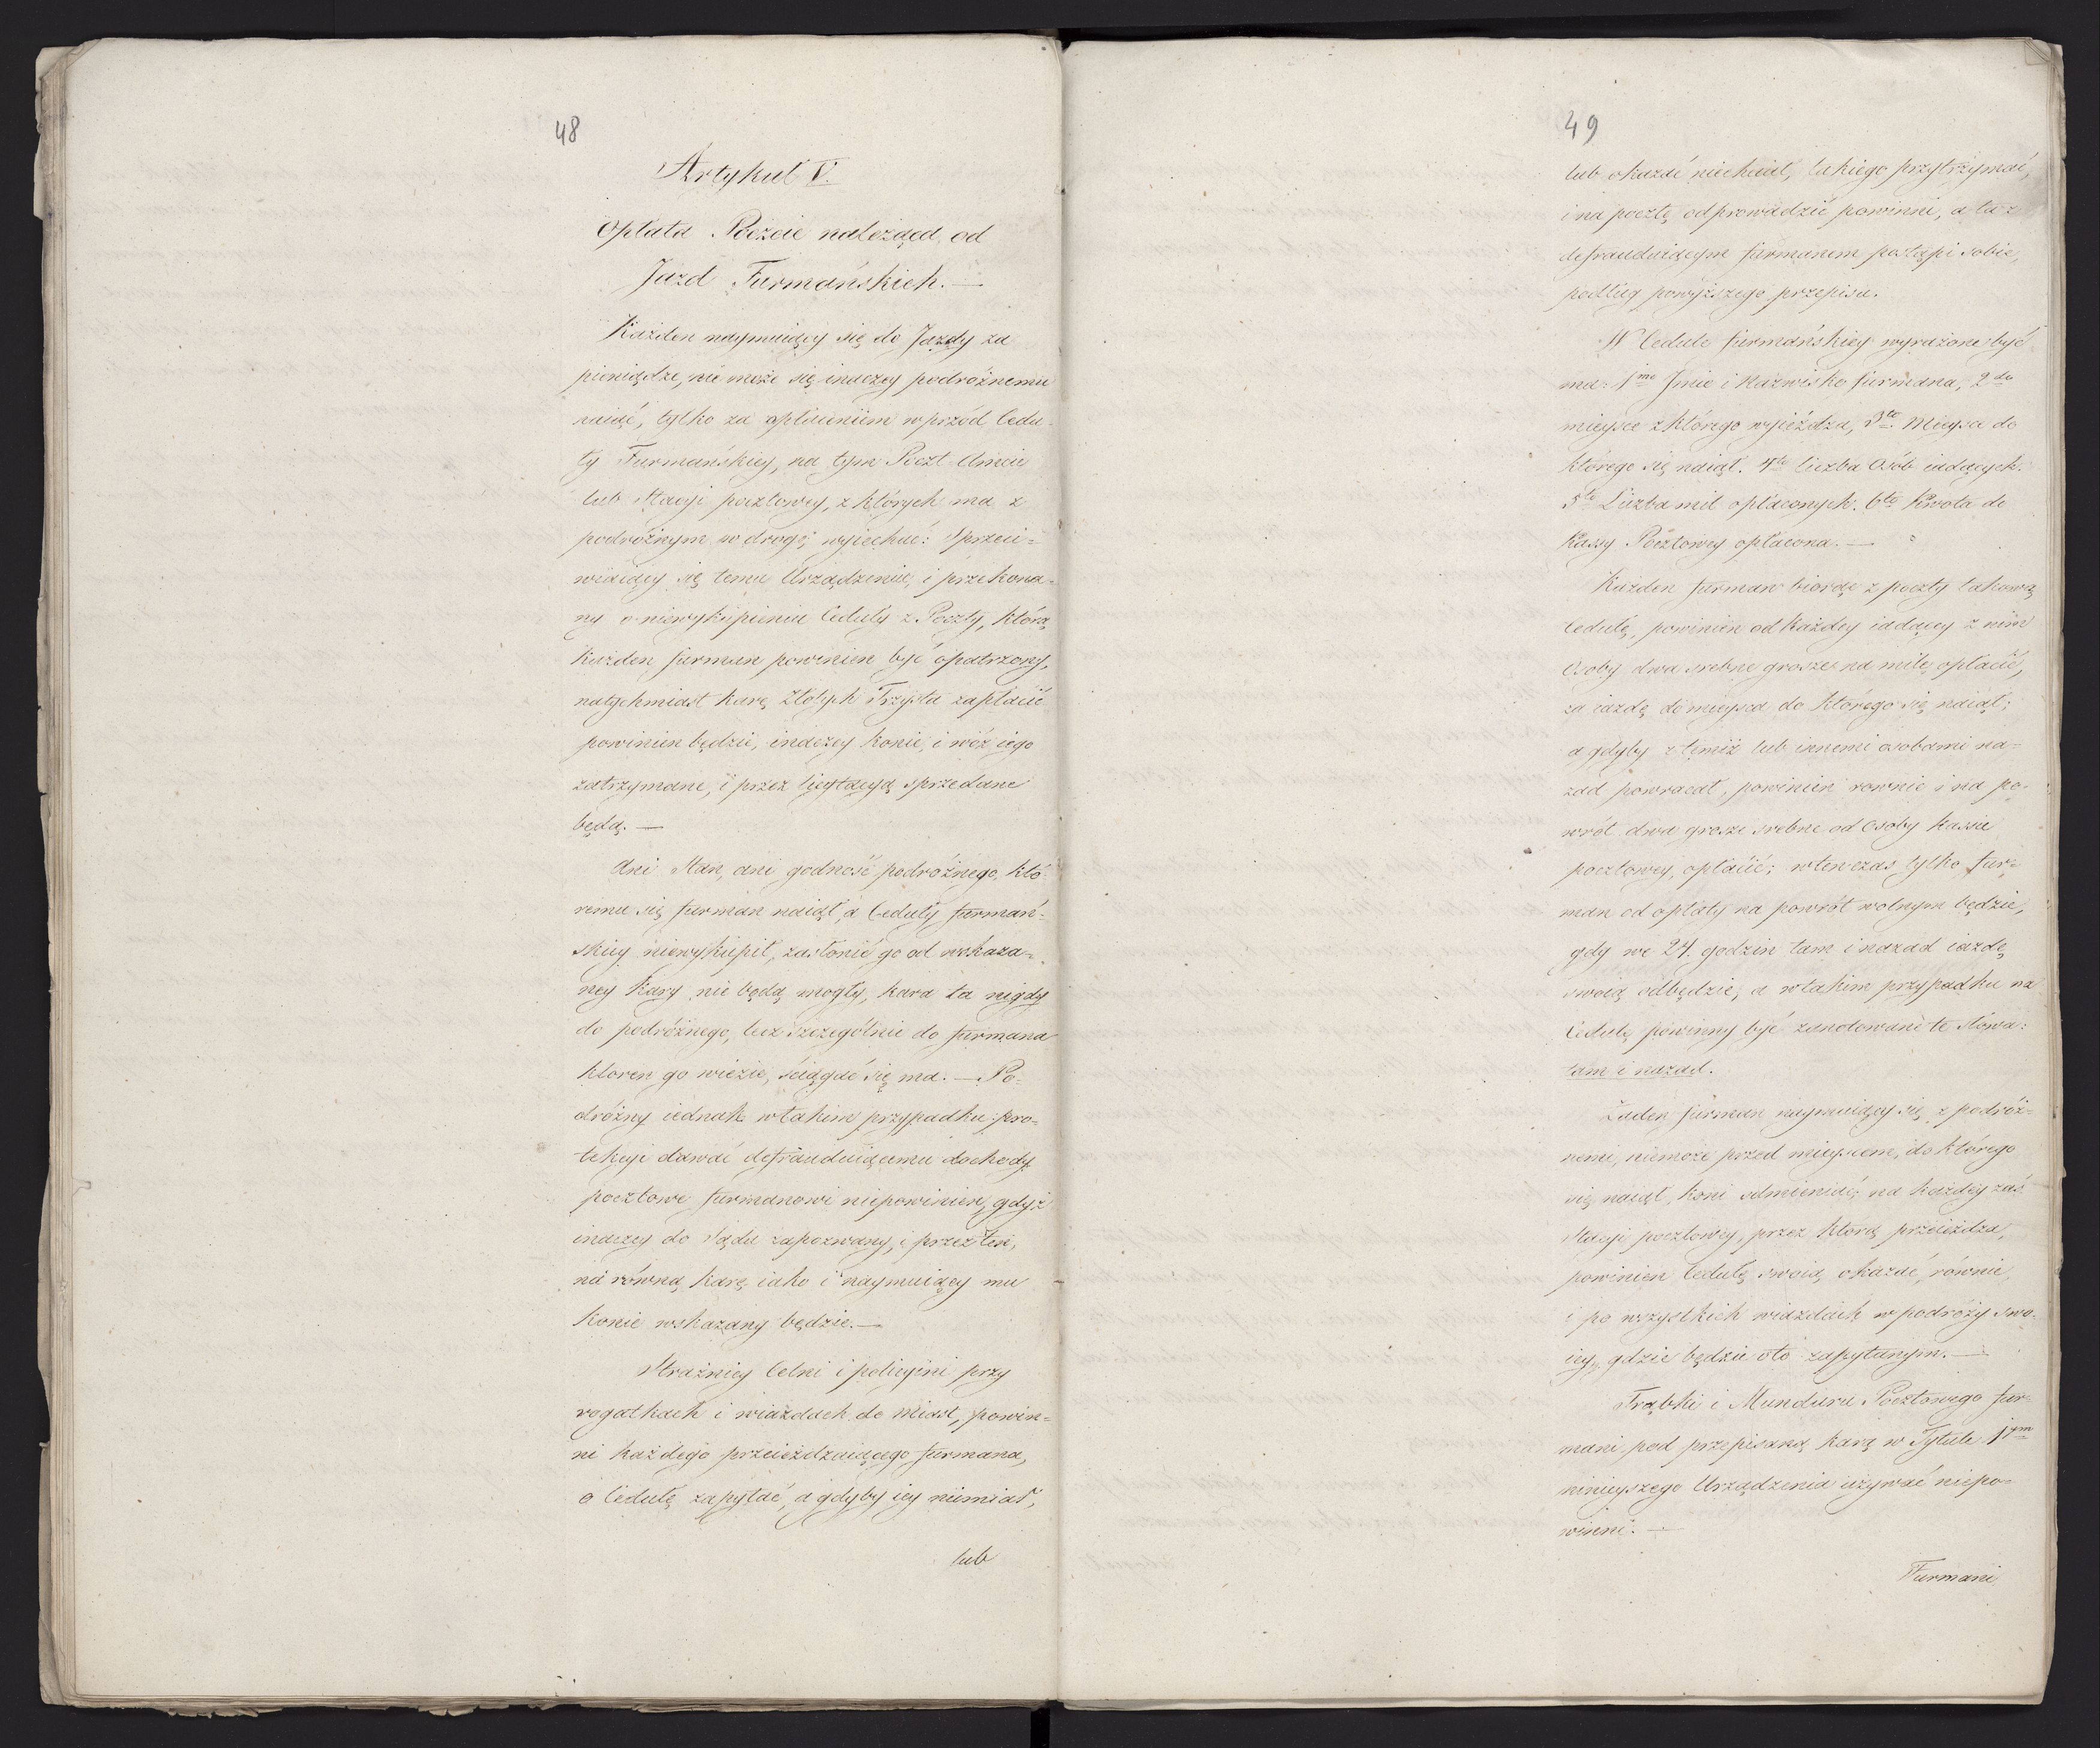 48
Artykuł V.
Opłata Poczcie należąca od
Jazd Furmańskich. —
Każden naymuiący się do Jazdy za
pieniądze, nie może się inaczey podróżnemu
naiąć, tylko za opłaceniem wprzód Cedu-
ły Furmańskiey, na tym Poczt-Amcie
lub Stacyi pocztowey, z których ma z
podróżnym w drogę wyjechać: Sprzeci-
wiaiący się temu Urządzeniu, i przekona-
ny o niewykupieniu Ceduły z Poczty, którą
Każden furman powinien być opatrzony,
natychmiast karę Złotych Trzysta zapłacić
powinien będzie, inaczey konie, i wóz iego
zatrzymane, i przez licytacyą sprzedane
będą. —
Ani Stan, ani godność podróżnego, któ-
remu się furman naiął, a Ceduły furmań-
skiey niewykupił, zasłonić go od wskaza-
ney kary nie będą mogły, kara ta nigdy
do podróżnego, lecz szczególnie do furmana
ktoren go wiezie, ściągać się ma. — Po-
dróżny iednak w takim przypadku pro-
tekcyi dawać defrauduiącemu dochody
pocztowe furmanowi niepowinien, gdyż
inaczey do Sądu zapozwany, i przez ten,
na równą karę iako i naymuiący mu
Konie wskazany będzie. —
Strażnicy Celni i policyini przy
rogatkach i wiazdach do Miast, powin-
ni każdego przeieżdzaiącego furmana,
o Cedułę zapytać, a gdyby iey niemiał,
lub
49
lub okazać niechciał, takiego przytrzymać,
i na pocztę odprowadzić powinni, a ta z
defrauduiącym furmanem postąpi sobie,
podług powyższego przepisu.
W Cedule furmańskiey wyrażone być
ma: 1mo Jmie i Nazwisko furmana, 2do
mieysce z którego wyieżdza, 3to Mieysce do
którego się naiął. 4to liczba Osób iadących.
5to Liczba mil opłaconych. 6to Kwota do
Kassy Pocztowey opłacona. —
Każden furman biorąc z poczty takową
Cedułę, powinien od każdey iadącey z nim
Osoby dwa srebne grosze na milę opłacić,
za iazdę do mieysca do którego się naiął;
a gdyby z temiż lub innemi osobami na-
zad powracał, powinien rownie i na po-
wrót dwa grosze srebne od Osoby kassie
pocztowey, opłacić; wtenczas tylko fur-
man od opłaty na powrót wolnym będzie,
gdy we 24. godzin tam i nazad iazdę
swoią odbędzie, a w takim przypadku na
Cedule powinny być zanotowane te słowa:
tam i nazad.
Żaden furman naymuiący się z podróż-
nemi, niemoże przed mieyscem, do którego
się naiął, koni odmieniać, na każdey zaś
Stacyi pocztowey, przez którą przeieżdza,
powinien Cedułę swoią okazać, równie
i po wszystkich wiazdach w podróży swo-
iey, gdzie będzie oto zapytanym. —
Trąbki i Munduru Pocztowego fur-
mani pod przepisaną karą w Tytule 1ym
ninieyszego Urządzenia używać niepo-
winni. —
Furmani